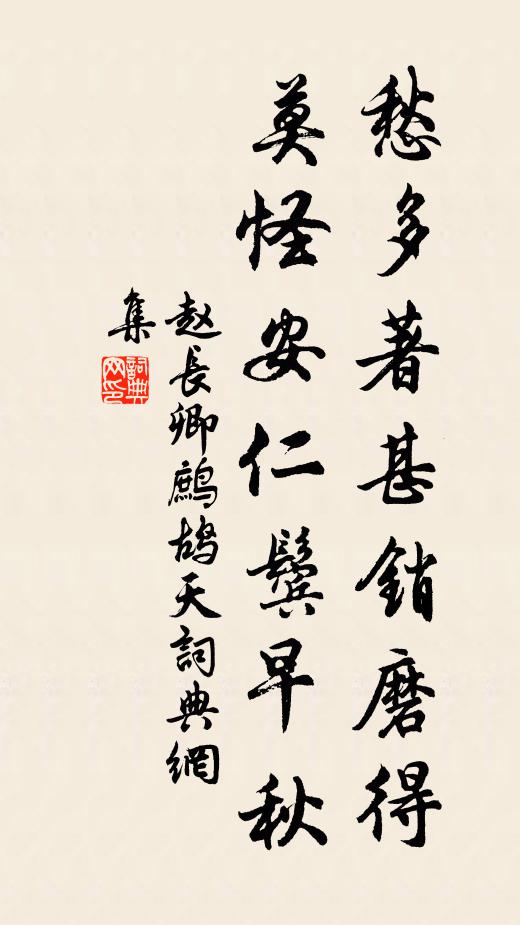 愁多著甚銷磨得
莫怪安仁鬢早秋
赵長卿鷓鴣天詞典網
集
詞典
网印